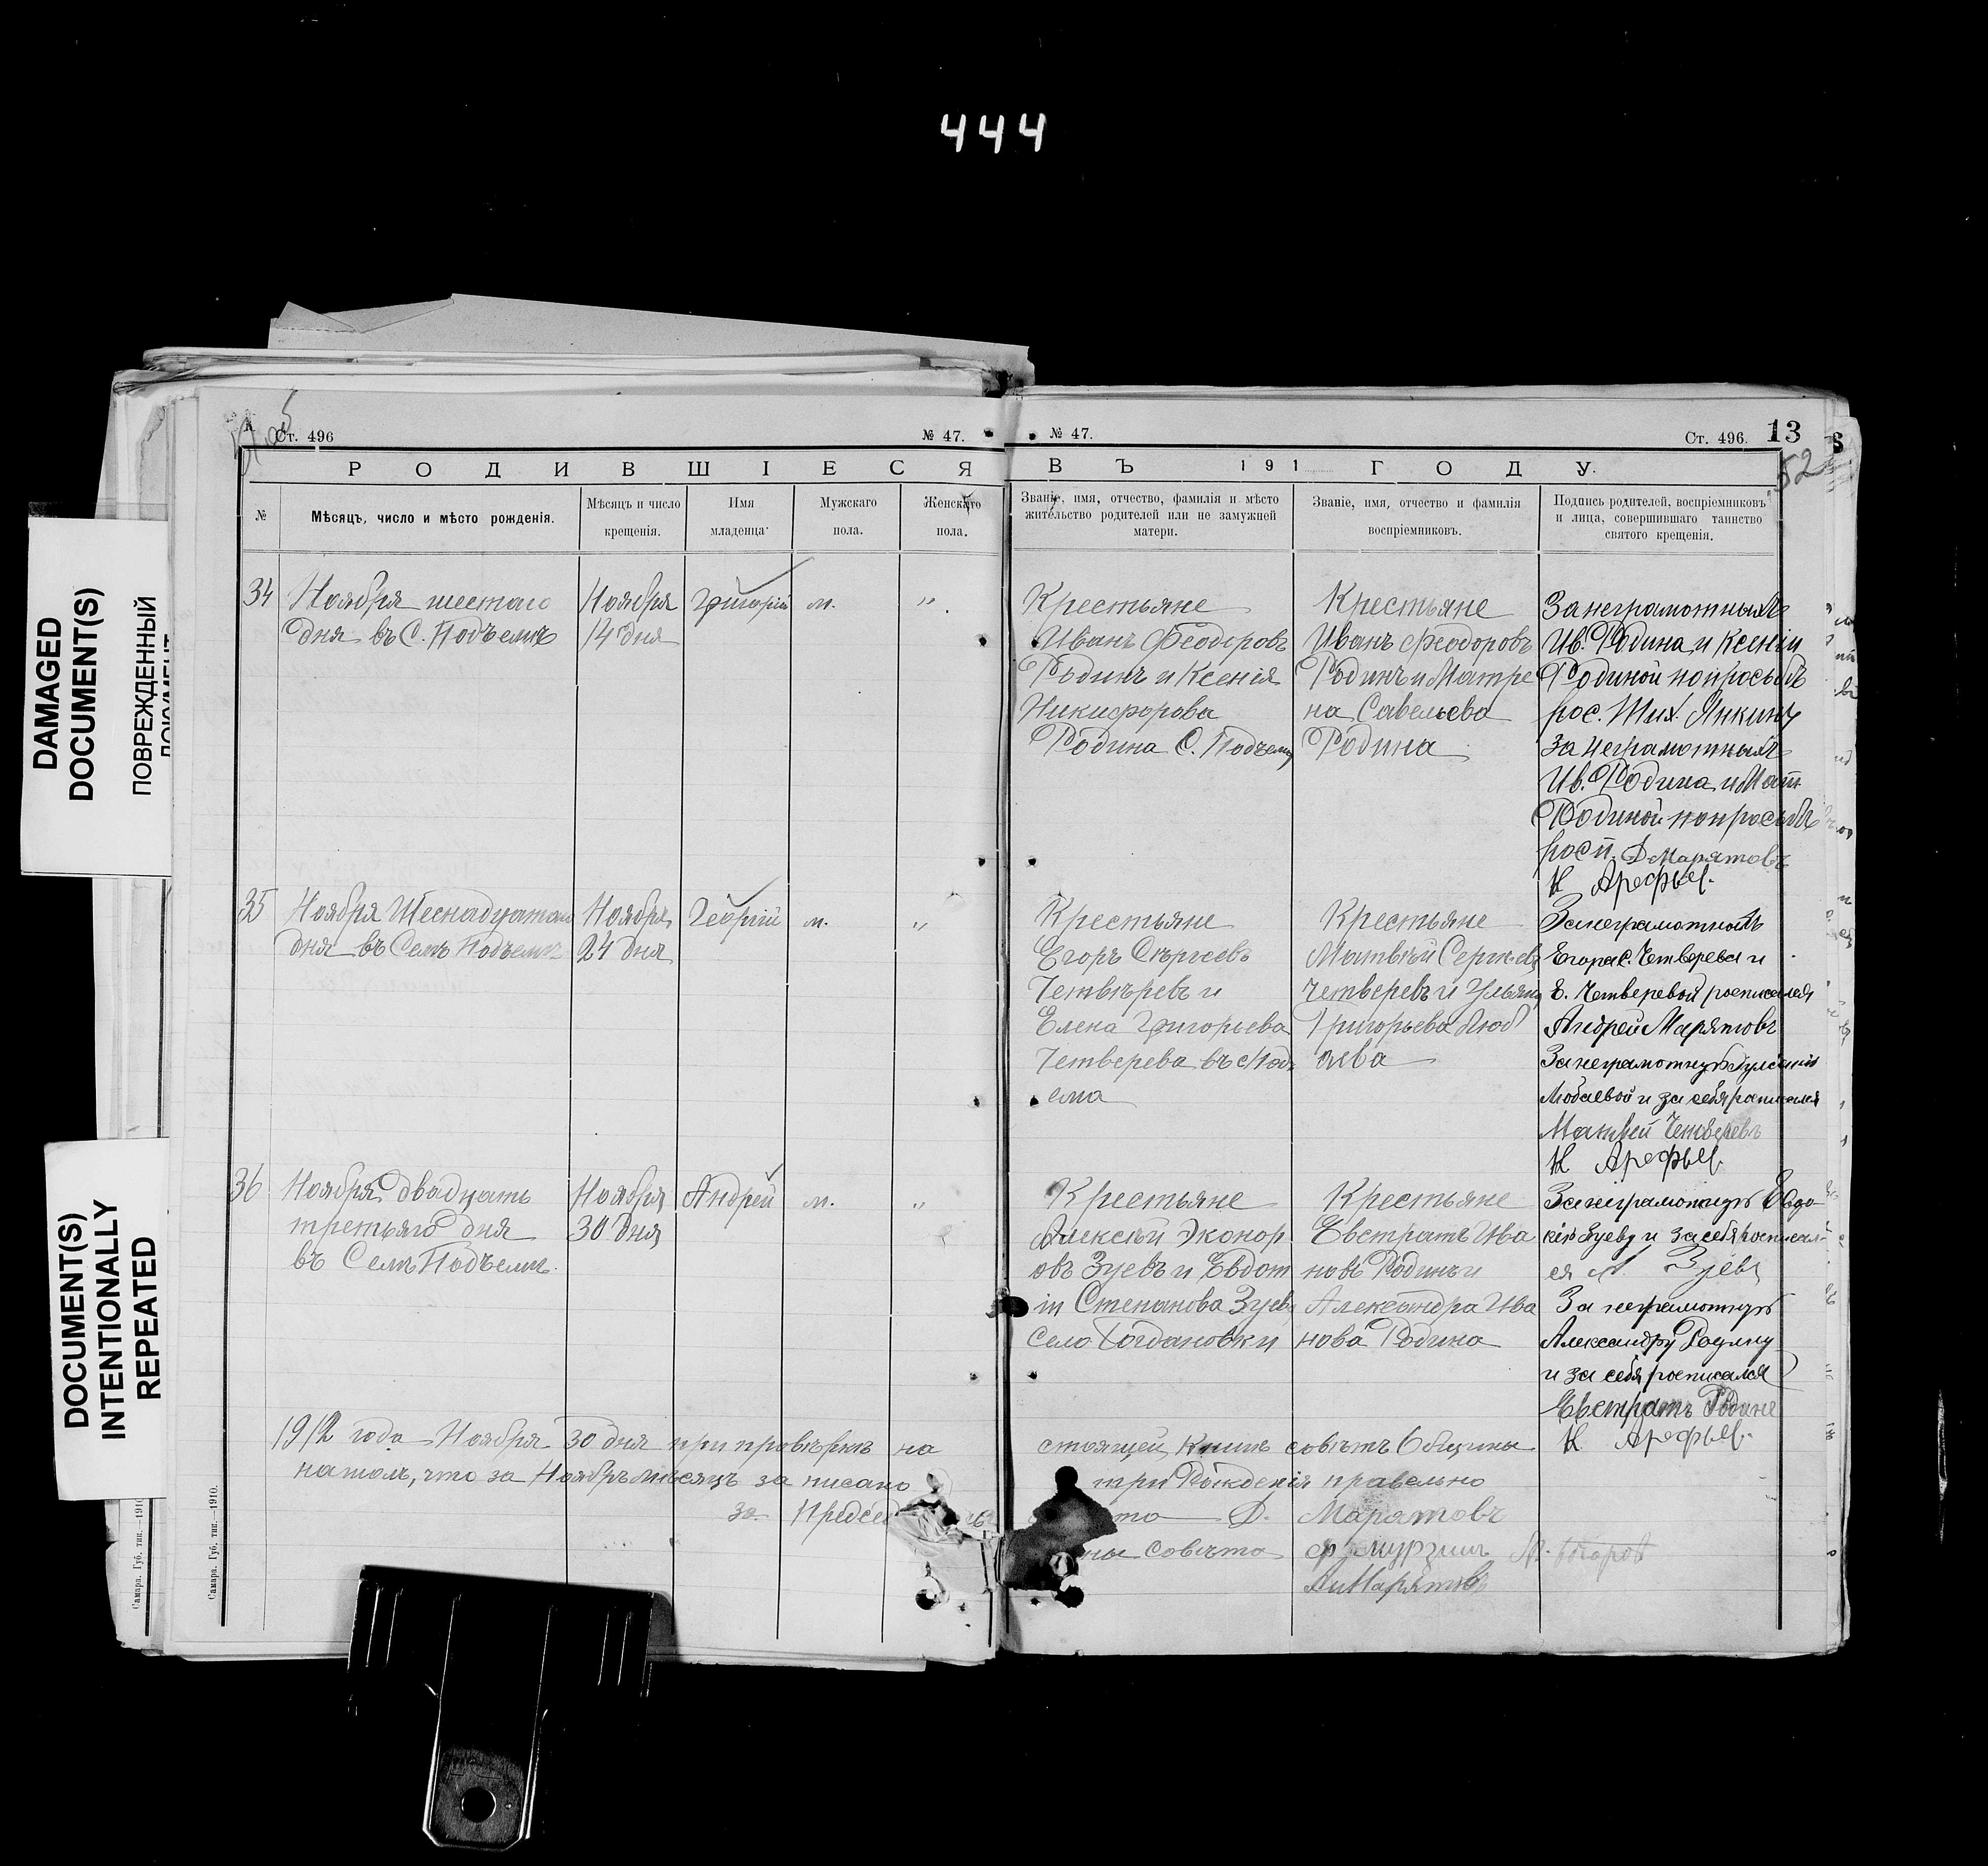 444
DAMAGED
DOCUMENT(S)
ПОВРЕЖДЕННЫЙ
DOCUMENT(S)
INTENTIONALLY
REPEATED
Ст. 496
№ 47.
№ 47.
Ст. 496.
13
52
РОДИВШІЕСЯ
ВЪ 191 ГОДУ.
№
Мѣсяцъ, число и мѣсто рожденія.
Мѣсяцъ и число
крещенія.
Имя
младенца
Мужскаго
пола.
Женскаго
пола.
Званіе, имя, отчество, фамилія и мѣсто
жительство родителей или не замужней
матери.
Званіе, имя, отчество и фамилія
воспріемниковъ.
Подпись родителей, воспріемниковъ
и лица, совершившаго таинство
святого крещенія.
34
Ноября шестаго
дня въ С. Подъемъ
Ноября
14 дня
Григорій
м.
„
Крестьяне
Иванъ Феодоровъ
Родинъ и Ксенія
Никифорова
Родина С. Подъемъ
Крестьяне
Иванъ Феодоровъ
Родинъ и Матре
на Савельева
Родина
За неграмотныхъ
Ив. Родина и Ксеніи
Родиной по просьбѣ
рос. Тих. Янкинъ
за неграмотныхъ
Ив. Родина и Мат
Родиной по просьбѣ
росп. Д Марятовъ
Н Арефьев.
35
Ноября Шеснадцатаго
дня въ Селѣ Подъемъ
Ноября
24 дня
Георгій
м.
„
Крестьяне
Егоръ Сѣргеевъ
Четвѣревъ и
Елена Григорьева
Четверева въ с Под
ема
Крестьяне
Матвѣй Сергѣевъ
Четверевъ и Ульяна
Григорьева Люб
аева
За неграмотныхъ
Егора С. Четверева и
Е. Четверевой росписался
Андрей Марятовъ
За неграмотную
Любаевой и за себя расписался
Матвей Четверевъ
Н Арефьев.
36
Ноября двадцать
третьяго дня
въ Селѣ Подъемъ
Ноября
30 дня
Андрей
м.
„
Крестьяне
Алексѣй Эконор
овъ Зуевъ и Евдот
ія Степанова Зуева
Село Богдановки
Крестьяне
Евстратъ Ива
новъ Родинъ и
Александра Ива
нова Родина
За неграмотную Евдо
кію Зуеву и за себя росписал-
ся А. Зуевъ
За неграмотную
Александру Родину
и за себя росписался
Евстратъ Родинъ
Н Арефьев.
1912 года Ноября 30 дня при провѣркѣ на
стоящей Книги совѣтъ Общины
нашолъ, что за Ноябрь мѣсяцъ за писано
три Рожденія правельно
за Председ
Д. Марятовъ
ны Совѣта
Ан Марятовъ
Самара. Губ. тип.—1910.
Самара. Губ. тип.—1910.